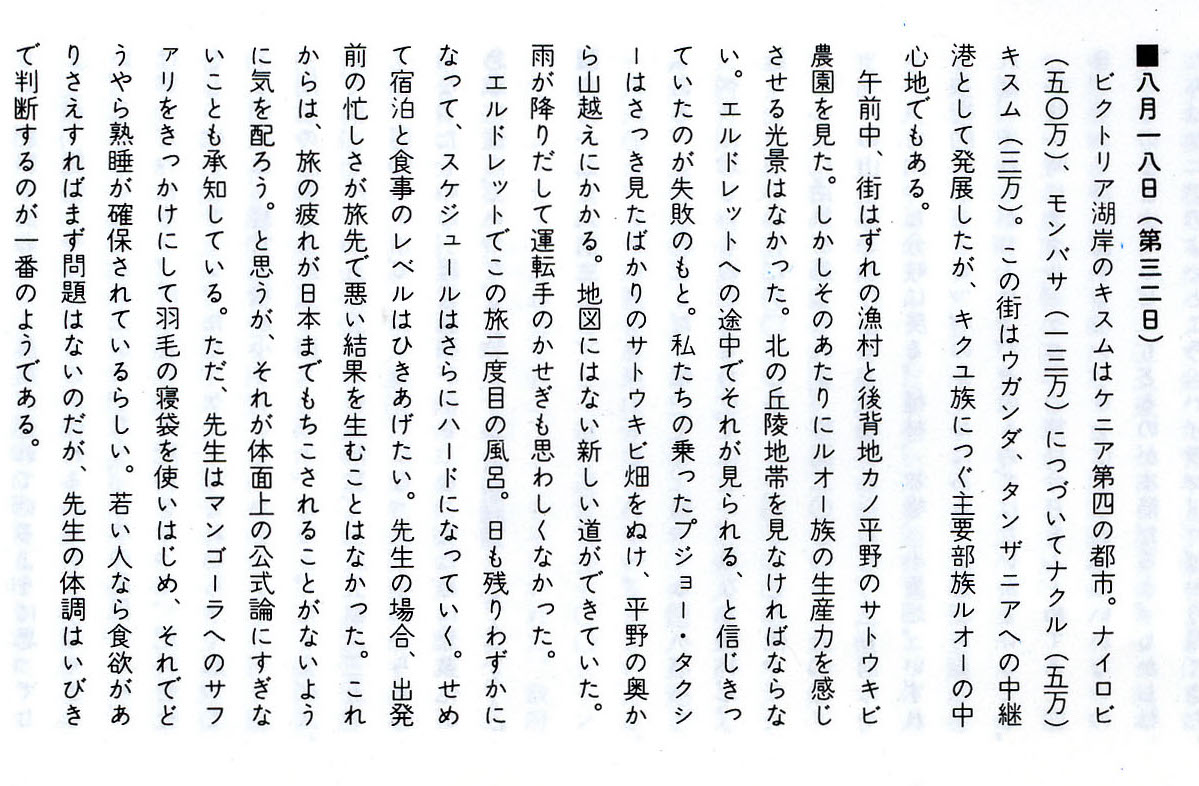 ■八月一八日(第三二日)
ビクトリア湖岸のキスムはケニア第四の都市。ナイロビ
(五〇万)、モンバサ(一三万)につづいてナクル(五万)
キスム(三万)。この街はウガンダ、タンザニアへの中継
港として発展したが、キクユ族につぐ主要部族ルオーの中
心地でもある。
午前中、街はずれの漁村と後背地カノ平野のサトウキビ
農園を見た。しかしそのあたりにルオー族の生産力を感じ
させる光景はなかった。北の丘陵地帯を見なければならな
い。エルドレットへの途中でそれが見られる、と信じきっ
ていたのが失敗のもと。私たちの乗ったプジョー・タクシ
ーはさっき見たばかりのサトウキビ畑をぬけ、平野の奥か
ら山越えにかかる。地図にはない新しい道ができていた。
雨が降りだして運転手のかせぎも思わしくなかった。
エルドレットでこの旅二度目の風呂。日も残りわずかに
なって、スケジュールはさらにハードになっていく。せめ
て宿泊と食事のレベルはひきあげたい。先生の場合、出発
前の忙しさが旅先で悪い結果を生むことはなかった。これ
からは、旅の疲れが日本までもちこされることがないよう
に気を配ろう。と思うが、それが体面上の公式論にすぎな
いことも承知している。ただ、先生はマンゴーラへのサフ
ァリをきっかけにして羽毛の寝袋を使いはじめ、それでど
うやら熟睡が確保されているらしい。若い人なら食欲があ
りさえすればまず問題はないのだが、先生の体調はいびき
で判断するのが一番のようである。